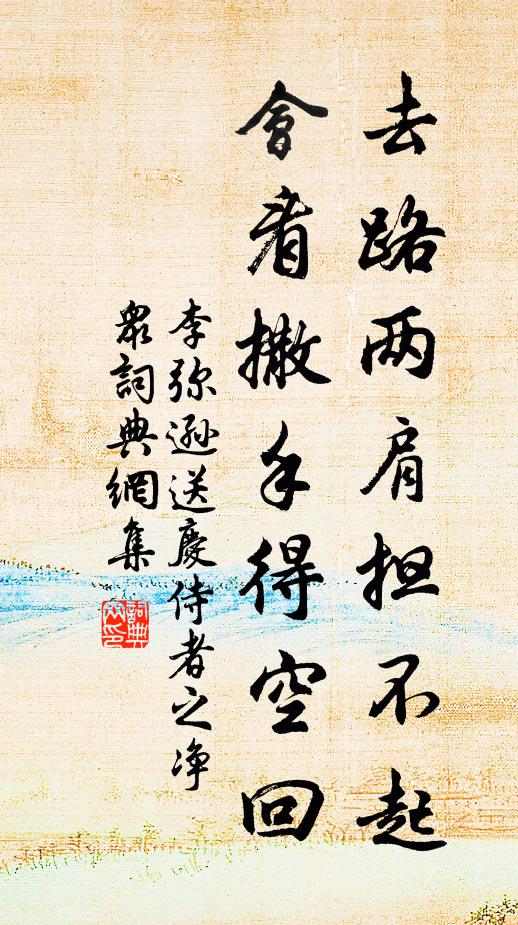 去路两肩担不起
會看撒手得空回
李弥遜送慶侍者之净
衆詞典網集
詞典